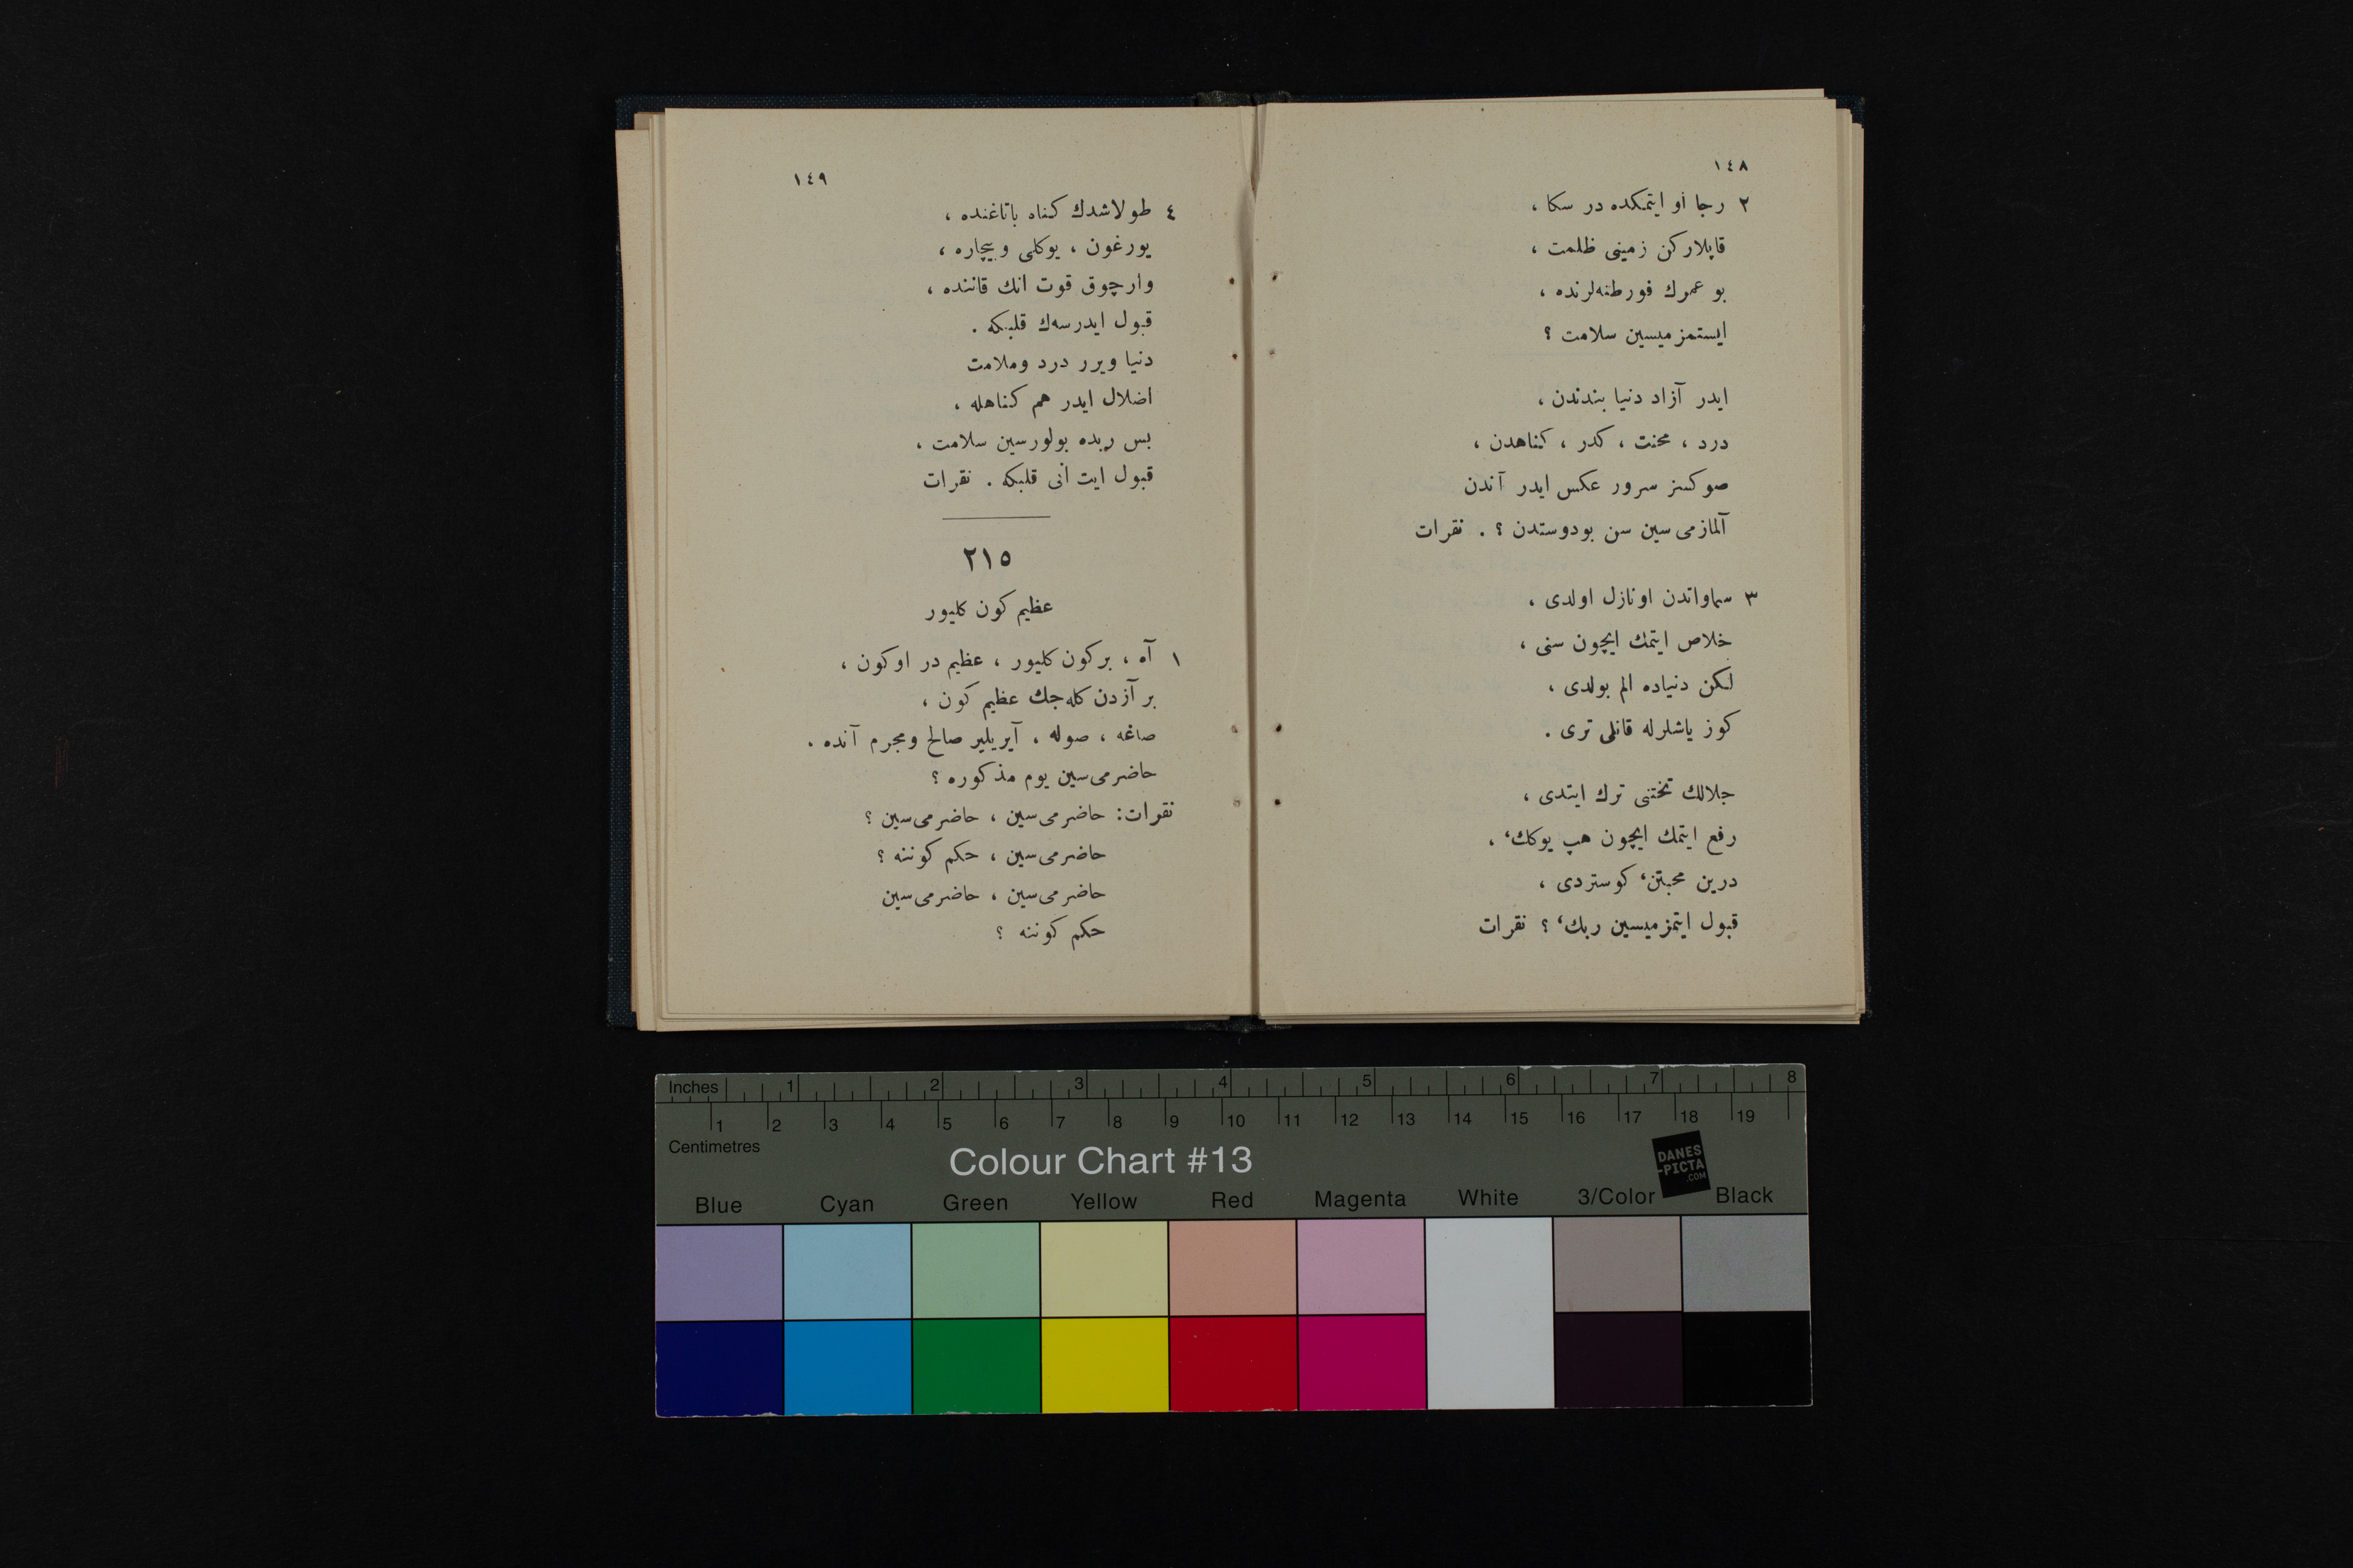 ١٤٨
٢ رجا او ايتمكده در سكا ،
قاپلاركن زمينى ظلمت ،
بو عمرك فورطنه‌لرنده ،
ايستمزميسين سلامت ؟
ايدر آزاد دنيا بندندن ،
درد ، محنت ، كدر ، كناهدن ،
صوكسز سرور عكس ايدر آندن
آلمازمى‌سين سن بودوستدن ؟ . نقرات
٣ سماواتدن اونازل اولدى ،
خلاص ايتمك ايچون سنى ،
لكن دنياده الم بولدى ،
كوز ياشلرله قانلى ترى .
جلالك تختنى ترك ايتدى ،
رفع ايتمك ايچون هپ يوكك‘ ،
درين محبتن‘ كوستردى ،
قبول ايتمزميسين ربك‘ ؟ نقرات
١٤٩
٤ طولاشدك كناه باتاغنده ،
يورغون ، يوكلى وبيچاره ،
وارچوق قوت انك قاننده ،
قبول ايدرسه‌ك قلبكه .
دنيا ويرر درد وملامت
اضلال ايدر هم كناهله ،
بس ربده بولورسين سلامت ،
قبول ايت انى قلبكه . نقرات
٢١٥
عظيم كون كليور
١ آه ، بركون كليور ، عظيم در اوكون ،
بر آزدن كله‌جك عظيم كون ،
صاغه ، صوله ، آيريلير صالح ومجرم آنده .
حاضرمى‌سين يوم مذكوره ؟
نقرات: حاضرمى‌سين ، حاضرمى‌سين ؟
حاضرمى‌سين ، حكم كوننه ؟
حاضرمى‌سين ، حاضرمى‌سين
حكم كوننه ؟
Inches 1 2 3 4 5 6 7 8
1 2 3 4 5 6 7 8 9 10 11 12 13 14 15 16 17 18 19
Centimetres
Colour Chart #13
DANES
-PICTA
.COM
Blue Cyan Green Yellow Red Magenta White 3/Color Black